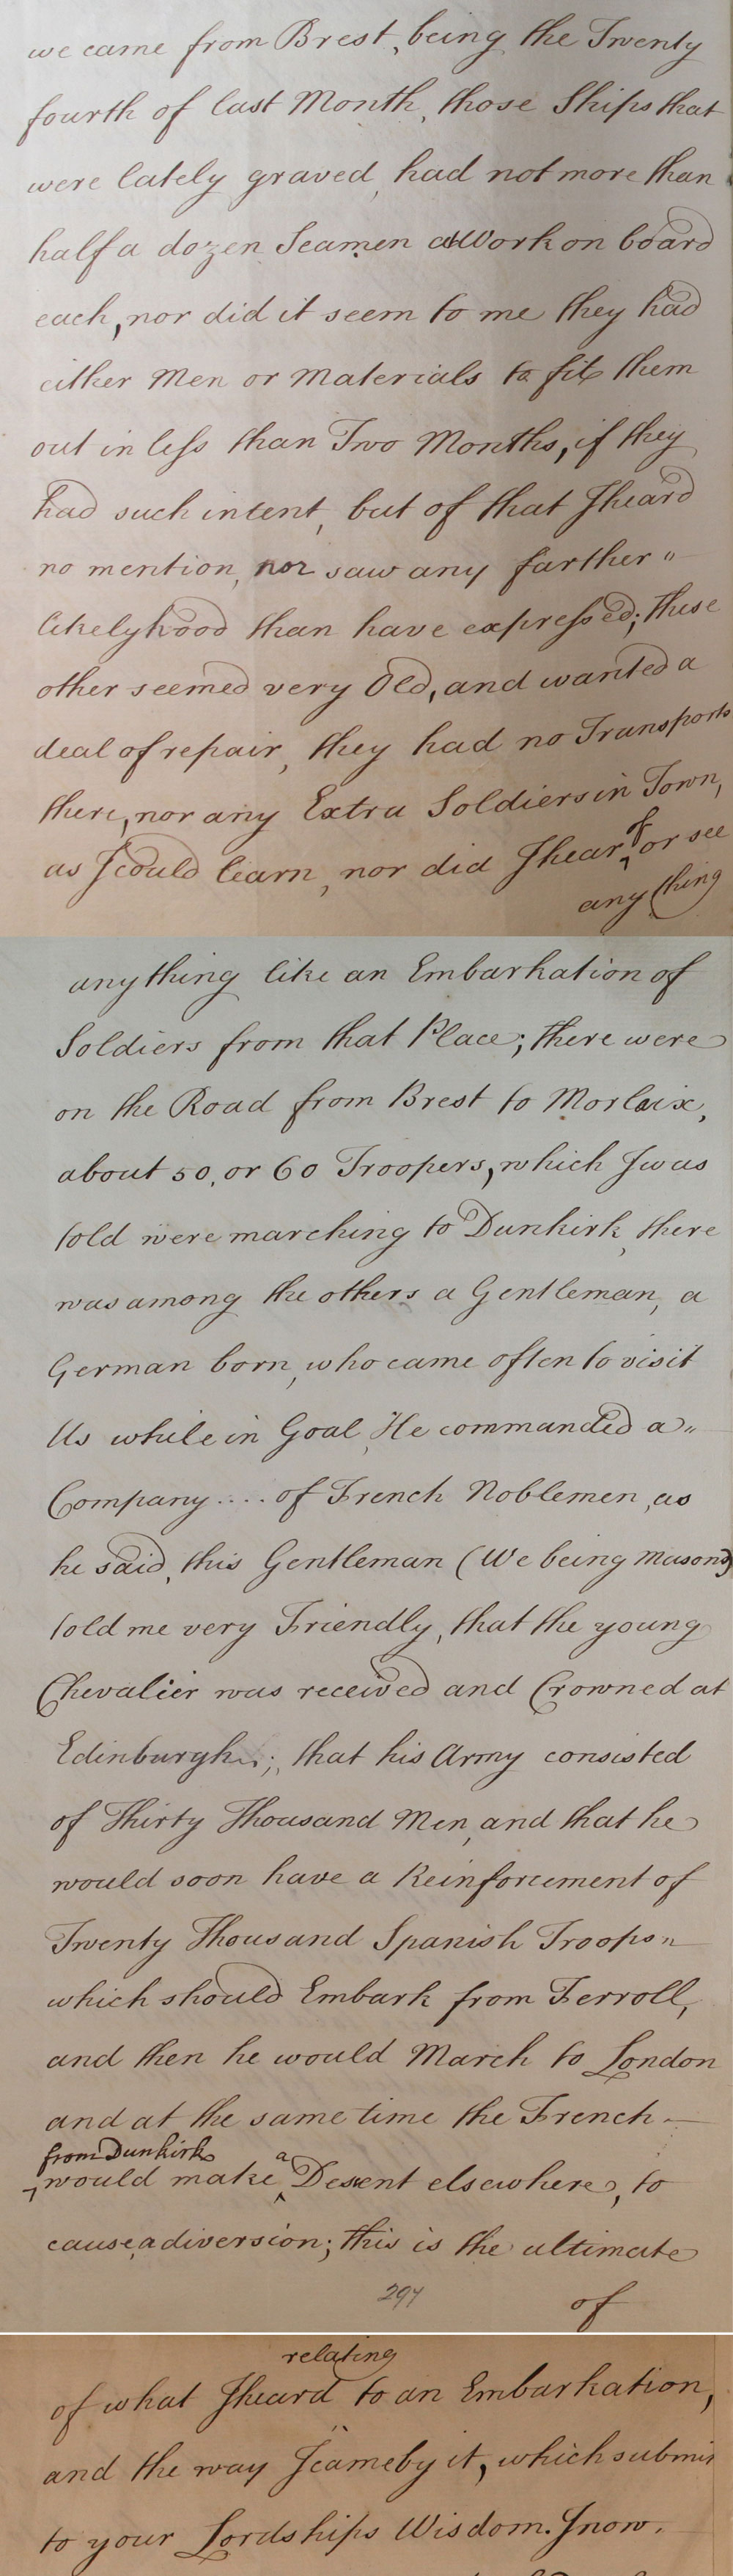 we came from Brest, being the Twenty
fourth of last Month, those Ships that
were lately graved, had not more than
half a dozen Seamen at Work on board
each, nor did it seem to me they had
either Men or Materials to fit them
out in less than Two Months, if they
had such intent, but of that I heard
no mention, nor saw any farther "
likelyhood than have expressed; these
other seemed very Old, and wanted a
deal of repair, they had no Transports
there, nor any Extra Soldiers in Town,
as I could learn, nor did I hear of or see
any thing
any thing like an Embarkation of
Soldiers from that Place; there were
on the Road from Brest to Morlaix,
about 50, or 60 Troopers, which I was
told were marching to Dunkirk, there
was among the others a Gentleman, a
German born, who came often to visit
Us while in Goal, He commanded a "
Company .... of French Noblemen, as
he said, this Gentleman (We being Masons)
told me very Friendly, that the young
Chevalier was received and Crowned at
Edinburgh; that his Army consisted
of Thirty Thousand Men, and that he
would soon have a Reinforcement of
Twenty Thousand Spanish Troops "
which should Embark from Ferroll,
and then he would March to London
and at the same time the French —
from Dunkirk
would make a Desent elsewhere, to
cause a diversion; this is the ultimate
297
of
relating
of what I heard to an Embarkation,
and the way I came by it, which submit
to your Lordships Wisdom. I now.